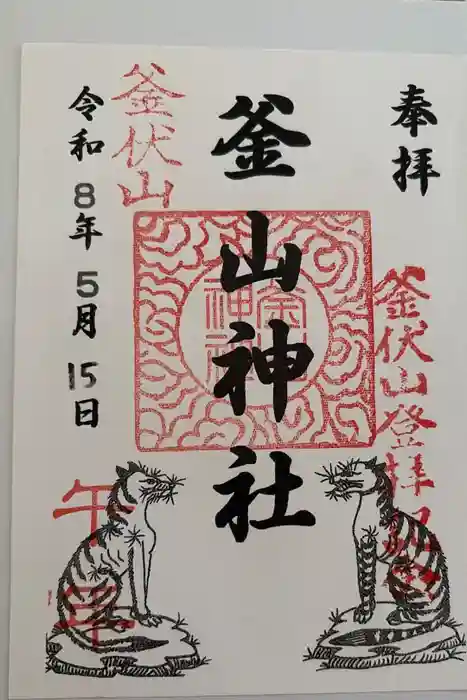 奉拝
釜伏山登拝記念
釜山神社
釜伏山
令和8年5月15日
午年